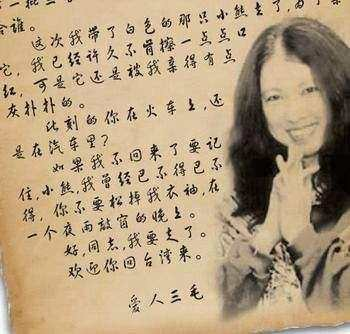 一批三。
会谁。
这次我带了白色的那只小熊去了,为了亲
它,我已经许久不肯擦一点点口
红,可是它还是被我亲得有点
灰扑扑的。
此刻的你在火车上,还
是在汽车里?
如果我不回来了,要记
住,小熊,我曾经巳不得巳不
得,你不要松掉我衣袖,在
一个夜雨敲窗的晚上。
好,同志,我要走了。
欢迎你回台湾来。
爱人三毛